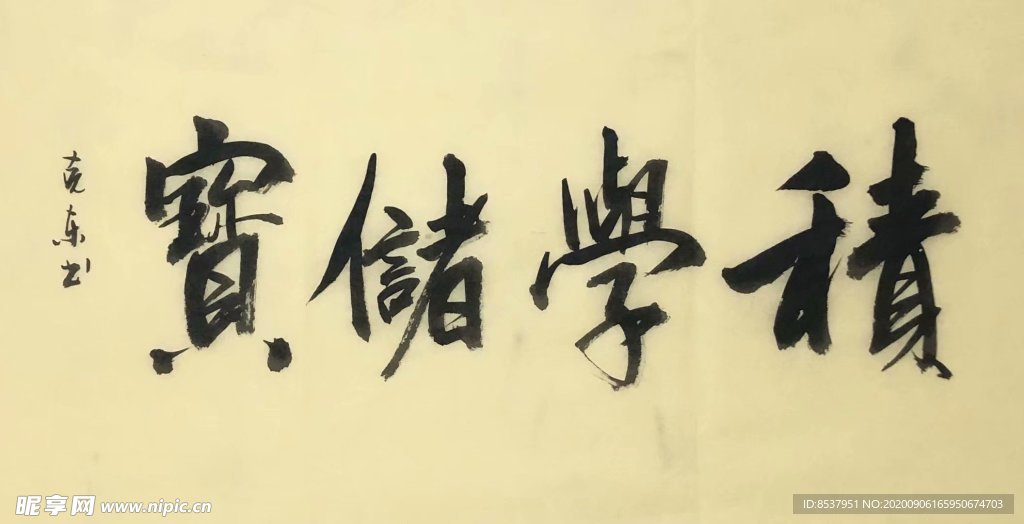 積學儲寳
克东书
昵享网 www.nipic.cn
ID:8537951 NO:20200906165950674703